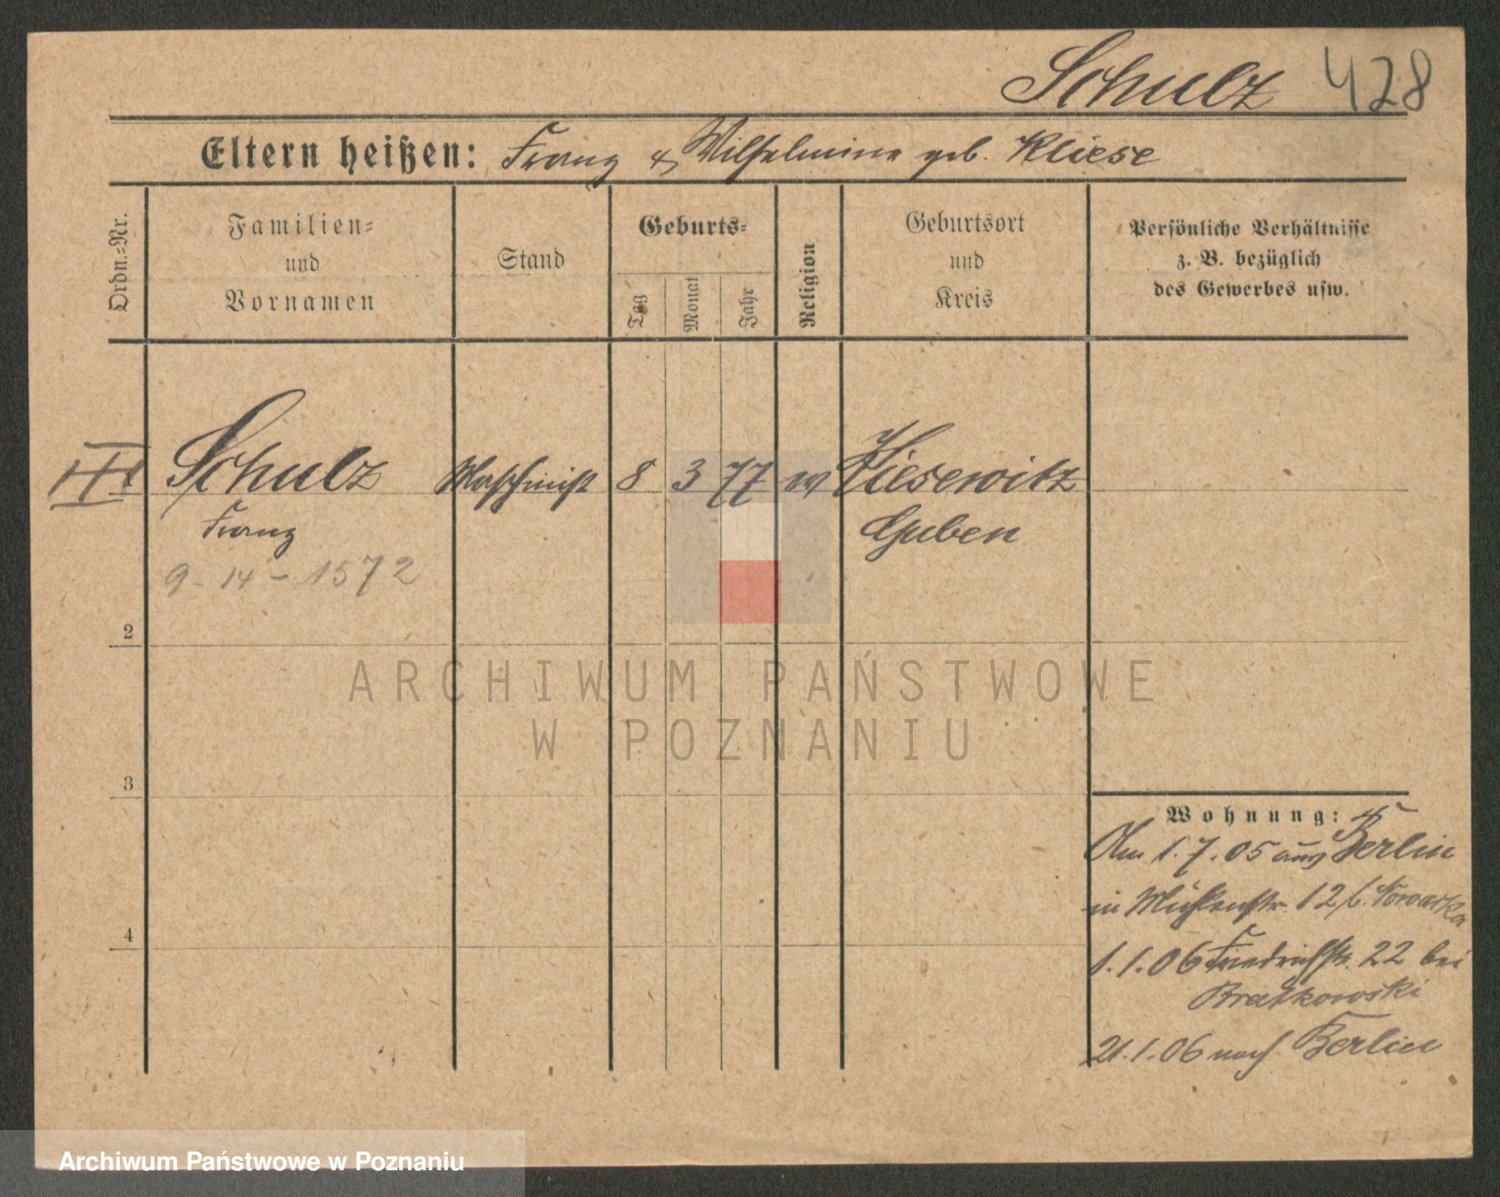 Schulz 428
Eltern heißen: Franz & Wilhelmine geb. Kliese
Ordn.=Nr.
Familien=
und
Vornamen
Stand
Geburts=
Tag
Monat
Jahr
Religion
Geburtsort
und
Kreis
Persönliche Verhältnisse
z. B. bezüglich
des Gewerbes usw.
III Schulz Maschinist 8 3 77 Kiesewitz
Franz Guben
9-14-1572
2
ARCHIWUM PAŃSTWOWE
W POZNANIU
3
Wohnung:
Am 1.7.05 aus Berlin
in Mühlenstr. 12 b. Nowatka
4
1.1.06 Friedrichstr. 22 bei
Bratkowski
21.1.06 nach Berlin
Archiwum Państwowe w Poznaniu